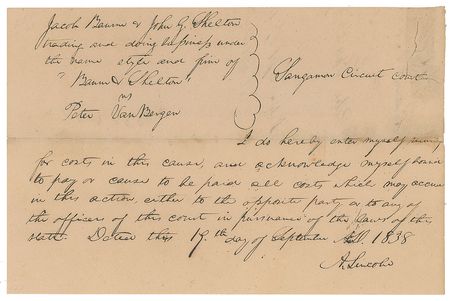 Jacob Baum & John G. Shelton
trading and doing business under
the name style and firm of
"Baum & Shelton"
vs
Peter Van Bergen
Sangamon Circuit court
I do hereby enter myself
for costs in this cause, and acknowledge myself bound
to pay or cause to be paid all costs which may accrue
in this action either to the opposite party or to any of
the officers of this court in pursuance of the laws of the
state. Dated this 19.th day of September A.D. 1838
A. Lincoln